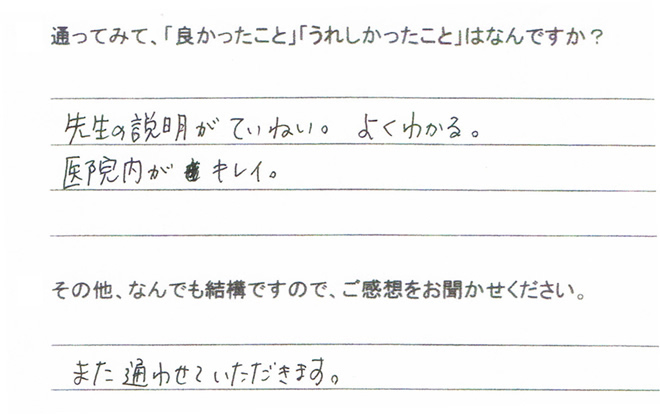 通ってみて、「良かったこと」「うれしかったこと」はなんですか？
先生の説明がていねい。 よくわかる。
医院内が キレイ。
その他、なんでも結構ですので、ご感想をお聞かせください。
また通わせていただきます。